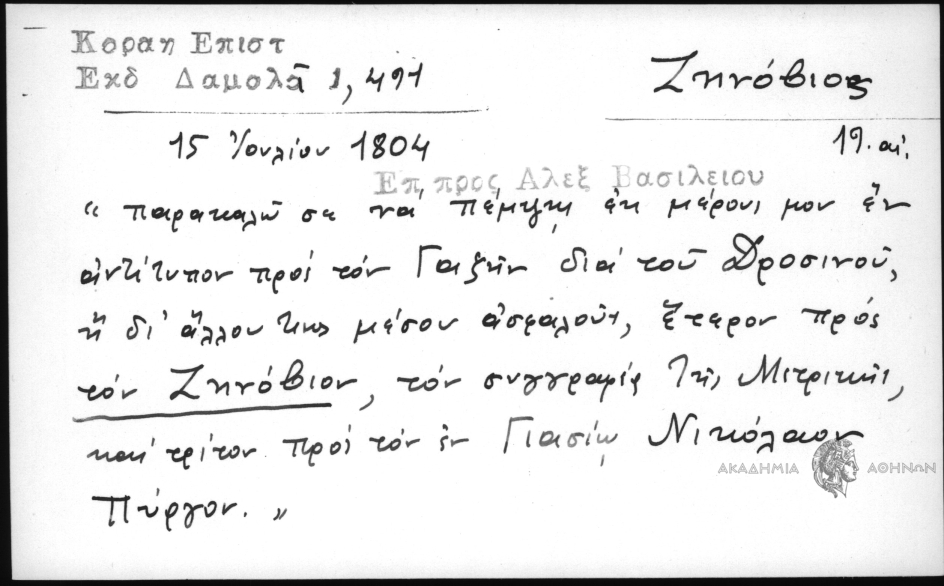 Κοραη Επιστ
Εκδ Δαμολᾶ 1, 491
Ζηνόβιος
15 Ἰουλίου 1804
19. αἰ.
Επ. προς Αλεξ Βασιλειου
“ παρακαλῶ σε νά πέμψῃς ἐκ μέρους μου ἕν
ἀντίτυπον πρός τόν Γαζῆν διά τοῦ Δροσινοῦ,
ἤ δι' ἄλλου τινος μέσου ἀσφαλοῦς, ἕτερον πρός
τόν Ζηνόβιον, τόν συγγραφέα τῆς Μετρικῆς,
καί τρίτον πρός τόν ἐν Γιασίῳ Νικόλαον
Πύργον. „
ΑΚΑΔΗΜΙΑ ΑΘΗΝΩΝ